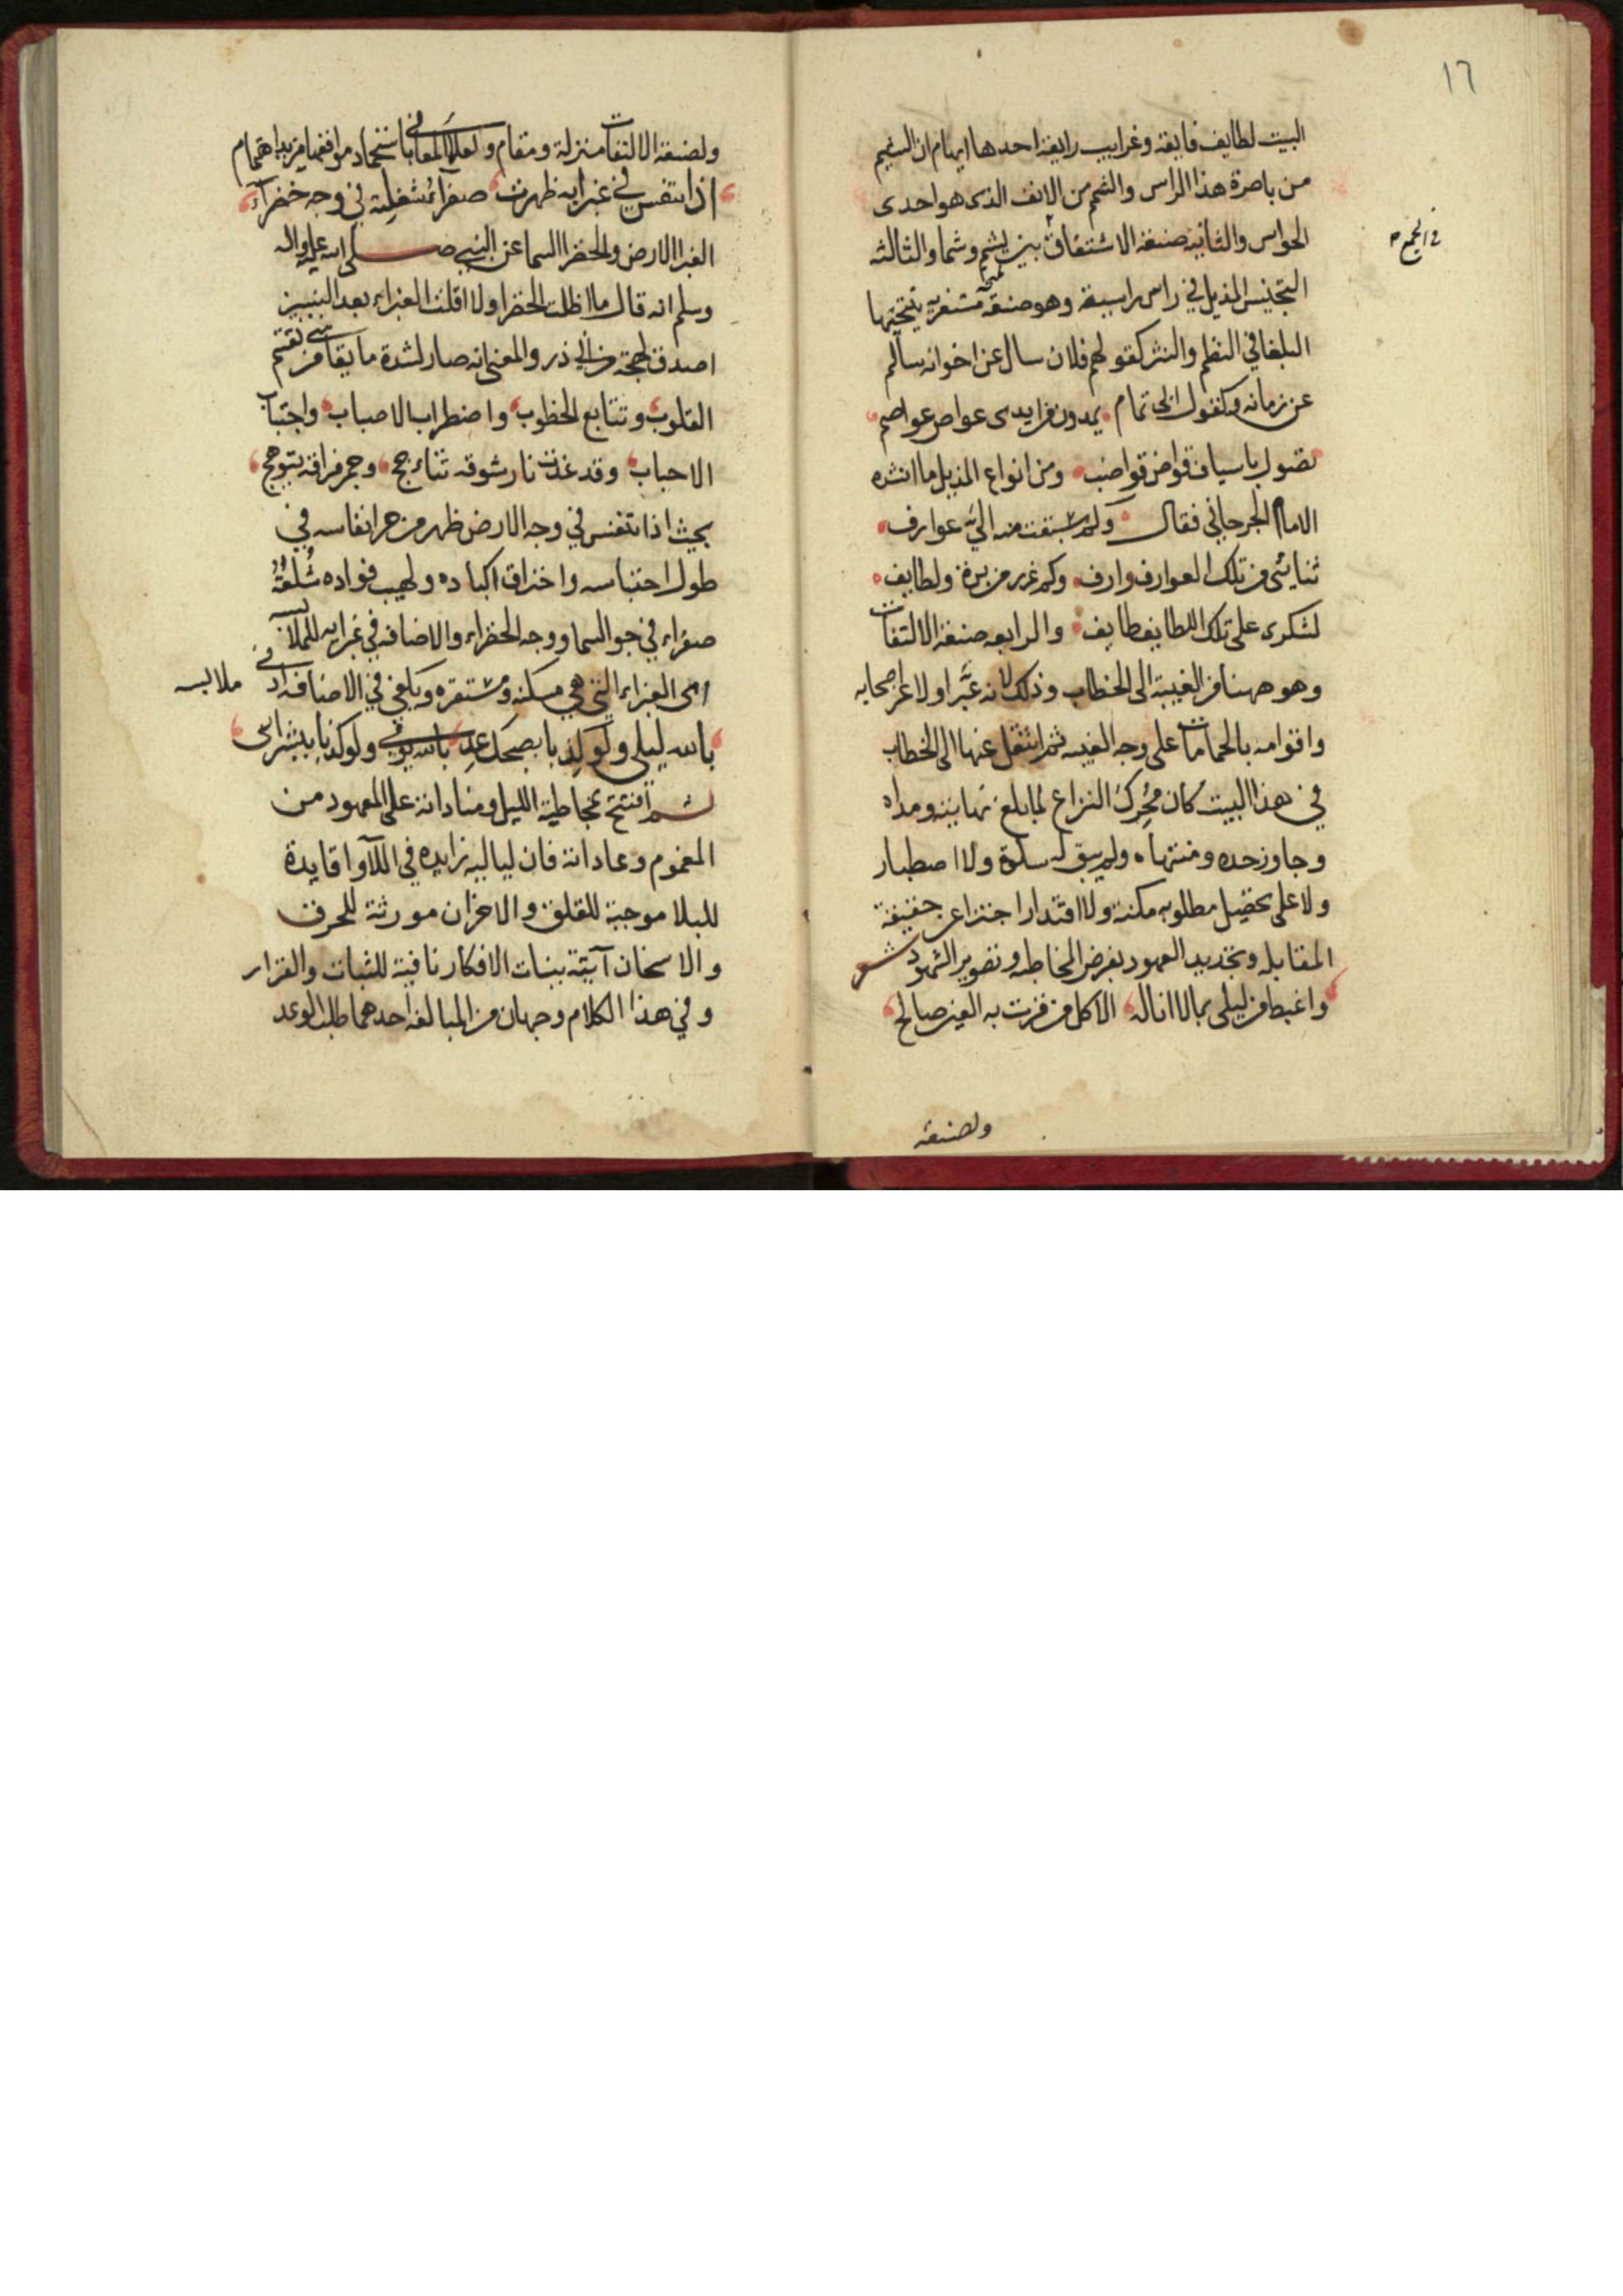 ١٦
البيت لطايف فايقة وغرايب رايقة احدها ايهام ان النسيم
من باصرة هذا الراس والشم من الانف الذى هو احدى
الحواس والثانية صنعة الاشتقاق بين يشم وشما والثالثة
فى الجمع
التجنيس المذيل في راس راسية وهو صنعة
البلغا في النظم والنثر كقولهم فلان سال عن اخوانه سالم
عن زمانه وكقول ابى تمام يمدون من ايدى عواص عواصم
تصول باسياف قواض قواضب ومن انواع المذيل ما انشده
الامام الجرجاني فقال وكم سبقت منه الىّ عوارف
ثنايئ من تلك العوارف وارف وكم غرر من بره ولطايف
لشكرى على تلك اللطايف طايف والرابعه صنعة الالتفات
وهو ههنا من الغيبة الى الخطاب وذلك لانه عبّر اولا عن اصحابه
واقوامه بالحمامات على وجه الغيبه ثم انتقل عنها الى الخطاب
في هذا البيت كان محرك النزاع لما بلغ نهايته ومداه
وجاوز حده ومنتهاه ولم يبق له سلوة ولا اصطبار
ولا على تحصيل مطلوبه مكنة ولا اقتدار حقيقة
المقابله وتجديد العهود بفرض المخاطبه وتصوير الشهود شعر
واغبط من ليلى بما لا اناله الا كل من قرت به العين صالح
ولصنعة
ولصنعة الالتفات منزلة ومقام ولعلما المعانى فى مزيد اهتمام
اذا تنفس في غبرايه ظهرت صفراء شعلته في وجه خضراء
الغبرا الارض والخضرا السما عن النبي صلى الله عليه واله
وسلم انه قال ما اظلت الخضرا ولا اقلت الغبراء بعد النبيين
اصدق لهجة من ابي ذر والمعنى انه صار لشدة ما يقا من
القلوب وتتابع الخطوب واضطراب الاصباب واجتناب
الاحباب وقد غدت نار شوقه تتاجج وجمر فراقه يتوهج
بحيث اذا تنفس في وجه الارض ظهر من حر انفاسه في
طول احتباسه واحتراق اكباده ولهيب فواده شعلة
صفراء في جو السما ووجه الخضراء والاضافه في غبرايه للملابسه
اى الغبراء التي هي مسكنه ومستقره ويكفي في الاضافه ادنى ملابسه
بالله ليلى ولو كذبا بصبحك عد بالله يومى ولو كذبا ببشراى
ثم افتتح بمخاطبة الليل ومناداته على المعهود من
المغموم وعاداته فان لياليه زايده في اللاوا قايدة
للبلا موجبة للقلق والاحزان مورثة للحرق
والاسخان آتية ببنات الافكار نافية للثبات والقرار
وفي هذا الكلام وجهان من المبالغة احدهما طلب الوعد